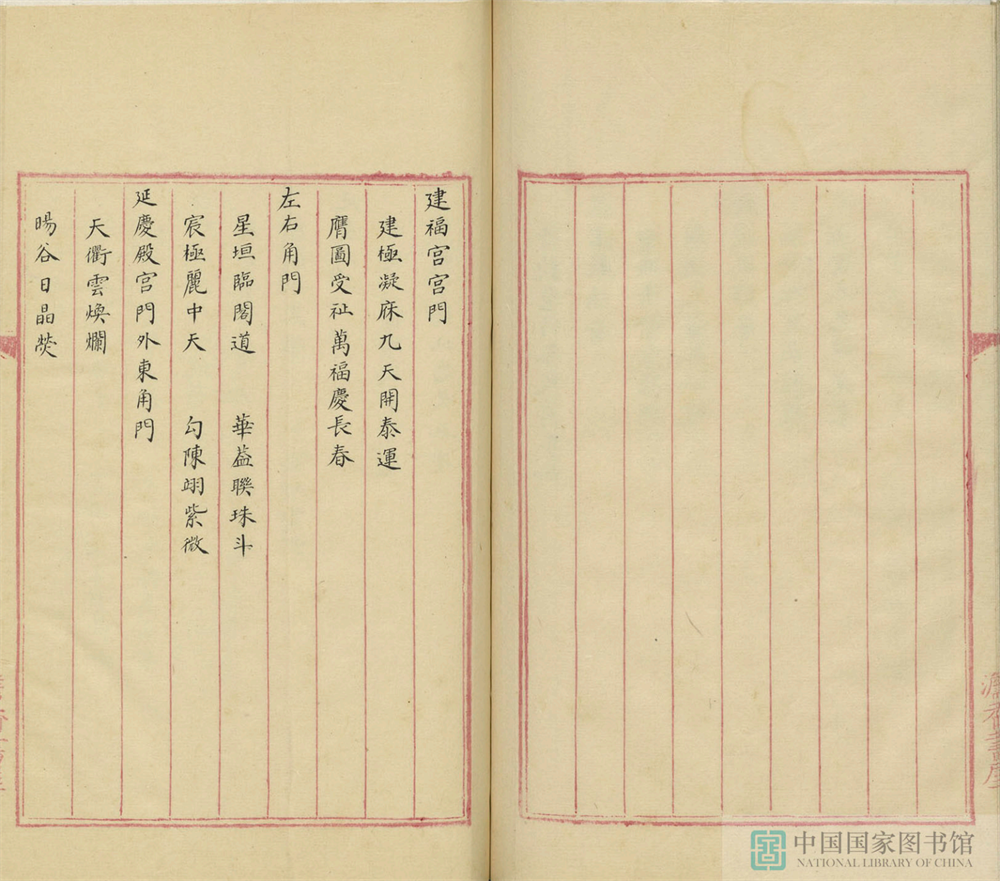 建福宮宮門
建極凝庥九天開泰運
膺圖受祉萬福慶長春
左右角門
星垣臨閣道　華葢聯珠斗
宸極麗中天　勾陳翊紫微
延慶殿宮門外東角門
天衢雲煥爛
暘谷日晶熒
中国国家图书馆
NATIONAL LIBRARY OF CHINA